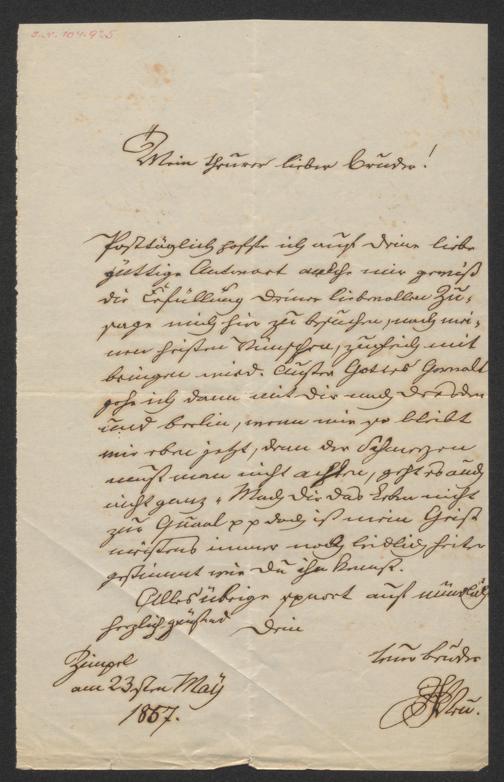 J.N. 104.925
Mein theurer lieber Bruder!
Posttäglich hoffte ich auf Deine liebe
güttige Antwort welche mir gewiß
die Erfüllung Deiner liebevollen Zu-
sage mich hier zu besuchen, nach mei-
nen heißen Wünschen, zugleich mit
bringen wird. Außer Gottes Gewalt
gehe ich dann mit Dir nach Dresden
und Berlin, wenn mir so bleibt
wie eben jetzt, denn der Schmerzen
muß man nicht achten, geht es auch
nicht ganz „Mach Dir das Leben nicht
zur Quaal pp doch ist mein Geist
meistens immer noch leidlich heiter
gestimmt wie Du ihn kennst.
Alles übrige spaart auf mündlich
herzlich grüßend Dein
treuer Bruder
Zimpel
am 23sten May
1857.